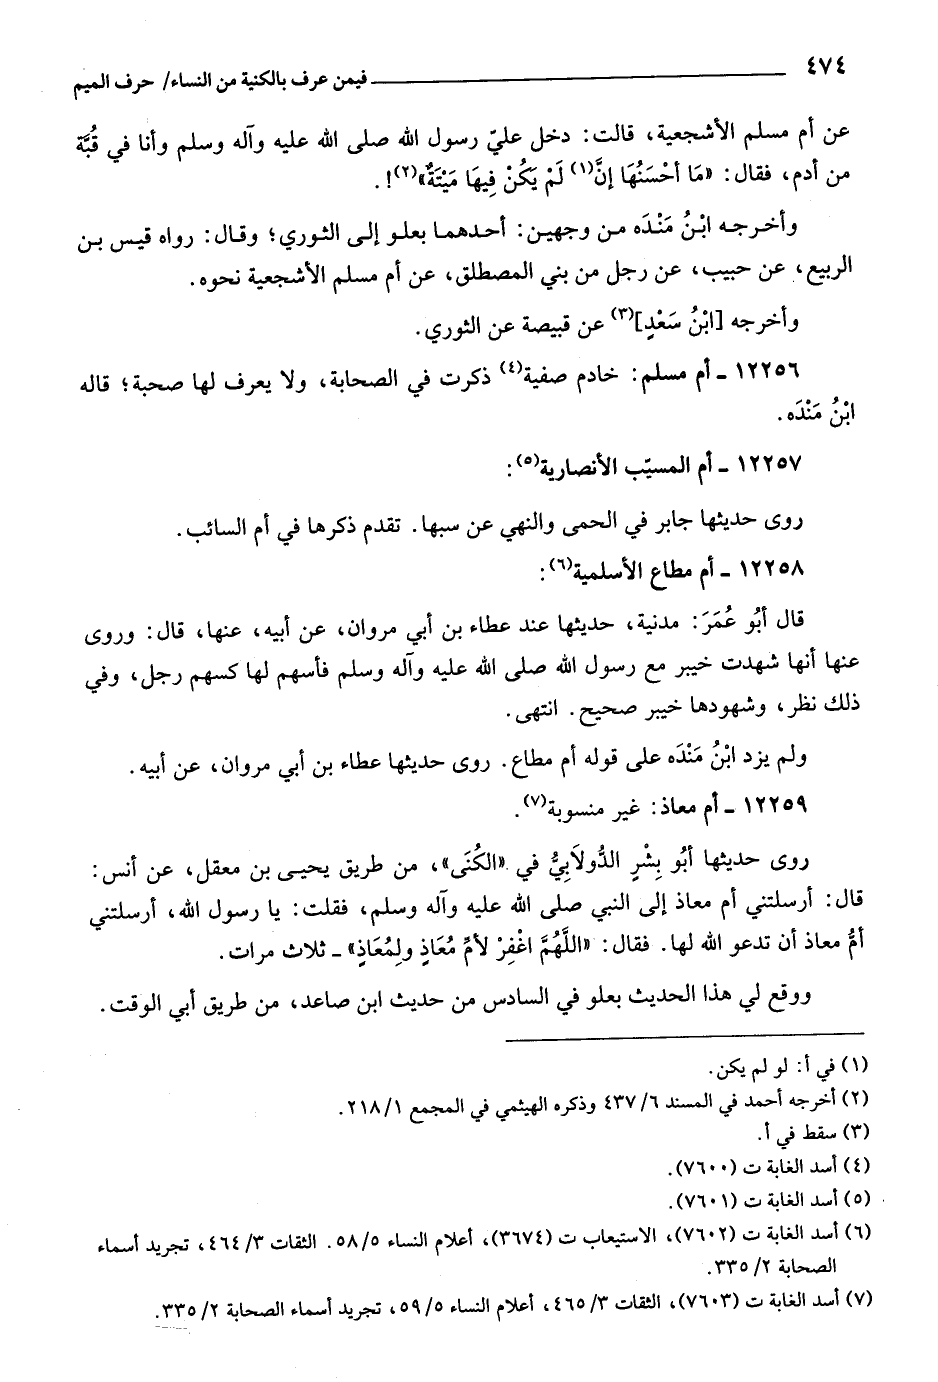 ٤٧٤ ــــــــــــــــــــــــــــــــ فيمن عرف بالكنية من النساء/ حرف الميم
عن أم مسلم الأشجعية، قالت: دخل عليّ رسول الله صلى الله عليه وآله وسلم وأنا في قُبَّة
من أدم، فقال: «مَا أَحْسَنُهَا إنَّ(١) لَمْ يَكُنْ فِيهَا مَيْتَةٌ»(٢)!.
وأخرجه ابْنُ مَنْدَه من وجهين: أحدهما بعلو إلى الثوري؛ وقال: رواه قيس بن
الربيع، عن حبيب، عن رجل من بني المصطلق، عن أم مسلم الأشجعية نحوه.
وأخرجه [ابْنُ سَعْدٍ](٣) عن قبيصة عن الثوري.
١٢٢٥٦ ـ أم مسلم: خادم صفية(٤) ذكرت في الصحابة، ولا يعرف لها صحبة؛ قاله
ابْنُ مَنْدَه.
١٢٢٥٧ ـ أم المسيّب الأنصارية(٥):
روى حديثها جابر في الحمى والنهي عن سبها. تقدم ذكرها في أم السائب.
١٢٢٥٨ ـ أم مطاع الأسلمية(٦):
قال أَبُو عُمَرَ: مدنية، حديثها عند عطاء بن أبي مروان، عن أبيه، عنها، قال: وروى
عنها أنها شهدت خيبر مع رسول الله صلى الله عليه وآله وسلم فأسهم لها كسهم رجل، وفي
ذلك نظر، وشهودها خيبر صحيح. انتهى.
ولم يزد ابْنُ مَنْدَه على قوله أم مطاع. روى حديثها عطاء بن أبي مروان، عن أبيه.
١٢٢٥٩ ـ أم معاذ: غير منسوبة(٧).
روى حديثها أَبُو بِشْرٍ الدُّولاَبِيُّ في «الكُنَى»، من طريق يحيى بن معقل، عن أنس:
قال: أرسلتني أم معاذ إلى النبي صلى الله عليه وآله وسلم، فقلت: يا رسول الله، أرسلتني
أمُّ معاذ أن تدعو الله لها. فقال: «اللَّهُمَّ اغْفِرْ لأُمِّ مُعَاذٍ ولِمُعَاذٍ» ـ ثلاث مرات.
ووقع لي هذا الحديث بعلو في السادس من حديث ابن صاعد، من طريق أبي الوقت.
(١) في أ: لو لم يكن.
(٢) أخرجه أحمد في المسند ٦/ ٤٣٧ وذكره الهيثمي في المجمع ١/ ٢١٨.
(٣) سقط في أ.
(٤) أسد الغابة ت (٧٦٠٠).
(٥) أسد الغابة ت (٧٦٠١).
(٦) أسد الغابة ت (٧٦٠٢)، الاستيعاب ت (٣٦٧٤)، أعلام النساء ٥/ ٥٨. الثقات ٣/ ٤٦٤، تجريد أسماء
الصحابة ٢/ ٣٣٥.
(٧) أسد الغابة ت (٧٦٠٣)، الثقات ٣/ ٤٦٥، أعلام النساء ٥/ ٥٩، تجريد أسماء الصحابة ٢/ ٣٣٥.